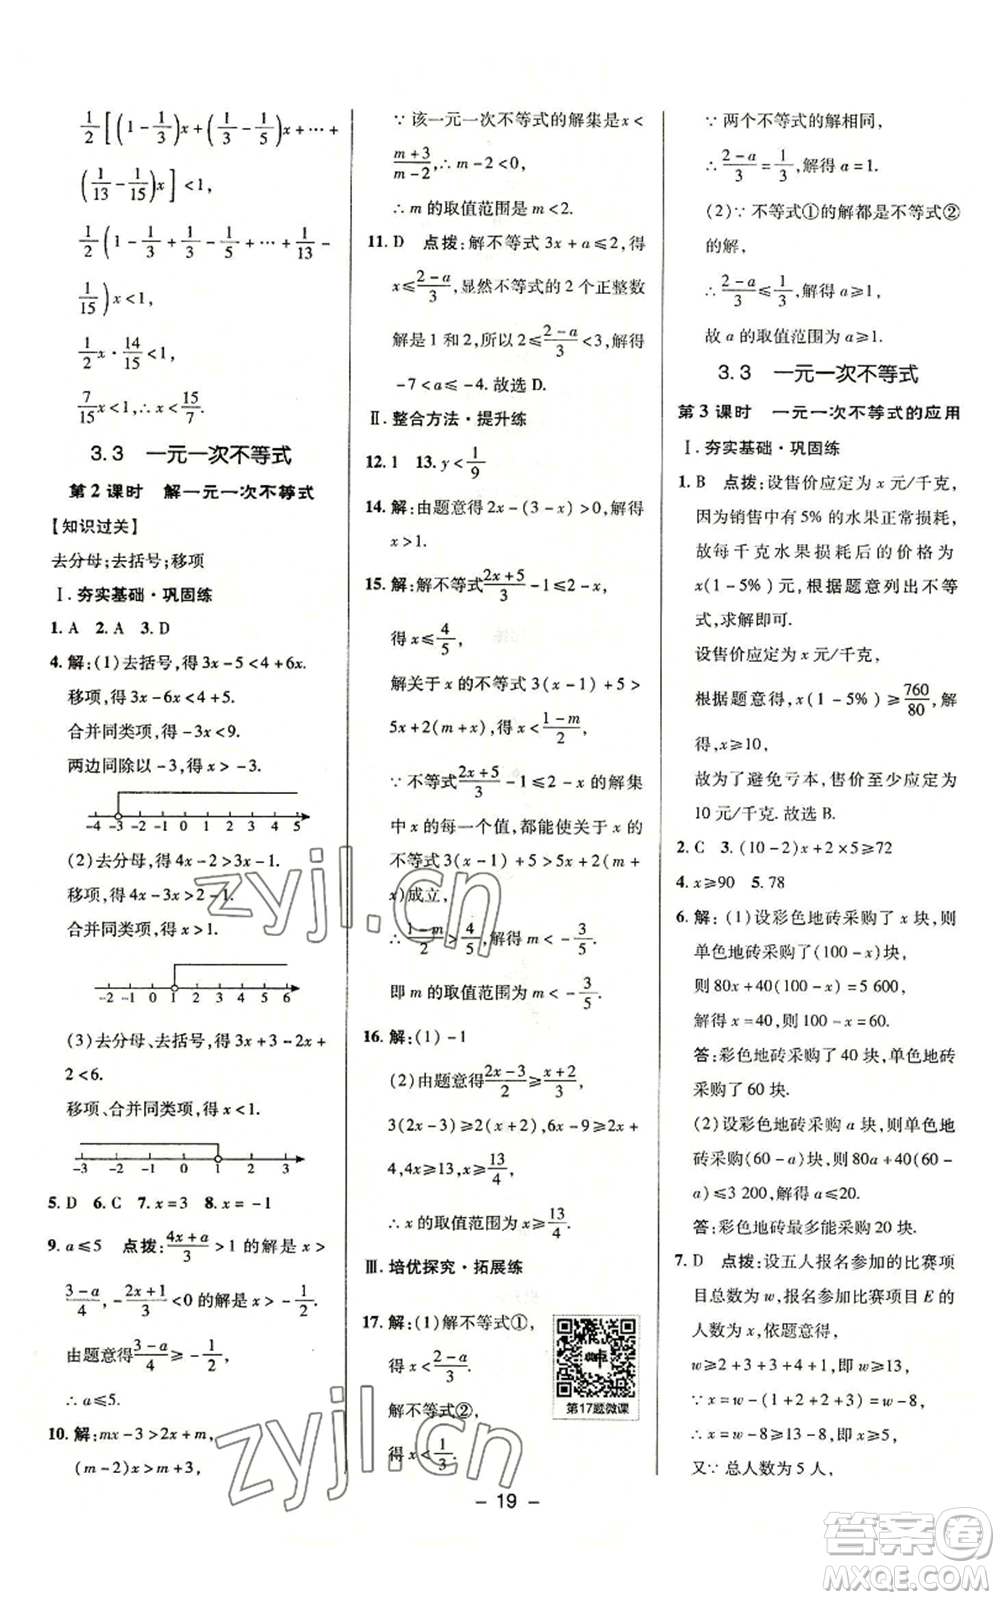 1/2[(1-1/3)x+(1/3-1/5)x+…+
(1/13-1/15)x]<1,
1/2(1-1/3+1/3-1/5+…+1/13-
1/15)x<1,
1/2x·14/15<1,
7/15x<1,∴x<15/7.
3.3 一元一次不等式
第2课时 解一元一次不等式
【知识过关】
去分母;去括号;移项
Ⅰ.夯实基础·巩固练
1. A 2. A 3. D
4. 解:(1)去括号,得3x-5<4+6x.
移项,得3x-6x<4+5.
合并同类项,得-3x<9.
两边同除以-3,得x>-3.
-4 -3 -2 -1 0 1 2 3 4 5
(2)去分母,得4x-2>3x-1.
移项,得4x-3x>2-1.
合并同类项,得x>1.
-2 -1 0 1 2 3 4 5 6
(3)去分母、去括号,得3x+3-2x+
2<6.
移项、合并同类项,得x<1.
-3 -2 -1 0 1 2 3
5. D 6. C 7. x=3 8. x=-1
9. a≤5 点拨:(4x+a)/3>1的解是x>
(3-a)/4,-(2x+1)/3<0的解是x>-1/2,
由题意得(3-a)/4≥-1/2,
∴a≤5.
10. 解:mx-3>2x+m,
(m-2)x>m+3,
∵该一元一次不等式的解集是x<
(m+3)/(m-2),∴m-2<0,
∴m的取值范围是m<2.
11. D 点拨:解不等式3x+a≤2,得
x≤(2-a)/3,显然不等式的2个正整数
解是1和2,所以2≤(2-a)/3<3,解得
-7<a≤-4.故选D.
Ⅱ.整合方法·提升练
12. 1 13. y<1/9
14. 解:由题意得2x-(3-x)>0,解得
x>1.
15. 解:解不等式(2x+5)/3-1≤2-x,
得x≤4/5,
解关于x的不等式3(x-1)+5>
5x+2(m+x),得x<(1-m)/2,
∵不等式(2x+5)/3-1≤2-x的解集
中x的每一个值,都能使关于x的
不等式3(x-1)+5>5x+2(m+
x)成立,
∴(1-m)/2>4/5,解得m<-3/5,
即m的取值范围为m<-3/5.
16. 解:(1)-1
(2)由题意得(2x-3)/2≥(x+2)/3,
3(2x-3)≥2(x+2),6x-9≥2x+
4,4x≥13,x≥13/4,
∴x的取值范围是x≥13/4.
Ⅲ.培优探究·拓展练
17. 解:(1)解不等式①,
得x<(2-a)/3,
解不等式②,
得x<1/3.
第17题微课
∵两个不等式的解相同,
∴(2-a)/3=1/3,解得a=1.
(2)∵不等式①的解都是不等式②
的解,
∴(2-a)/3≤1/3,解得a≥1,
故a的取值范围为a≥1.
3.3 一元一次不等式
第3课时 一元一次不等式的应用
Ⅰ.夯实基础·巩固练
1. B 点拨:设售价应定为x元/千克,
因为销售中有5%的水果正常损耗,
故每千克水果损耗后的价格为
x(1-5%)元,根据题意列出不等
式,求解即可.
设售价应定为x元/千克,
根据题意得,x(1-5%)≥760/80,解
得,x≥10,
故为了避免亏本,售价至少应定为
10元/千克.故选B.
2. C 3. (10-2)x+2×5≥72
4. x≥90 5. 78
6. 解:(1)设彩色地砖采购了x块,则
单色地砖采购了(100-x)块,
则80x+40(100-x)=5 600,
解得x=40,则100-x=60.
答:彩色地砖采购了40块,单色地砖
采购了60块.
(2)设彩色地砖采购a块,则单色地
砖采购了(60-a)块,则80a+40(60-
a)≤3 200,解得a≤20.
答:彩色地砖最多能采购20块.
7. D 点拨:设五人报名参加的比赛项
目总数为w,报名参加比赛项目E的
人数为x,依题意得,
w≥2+3+3+4+1,即w≥13,
∵x=w-(1+2+2+3)=w-8,
∴x=w-8≥13-8,即x≥5,
又∵总人数为5人,
- 19 -
zyjl.cn
zyjl.cn
答案圈
MXQE.COM